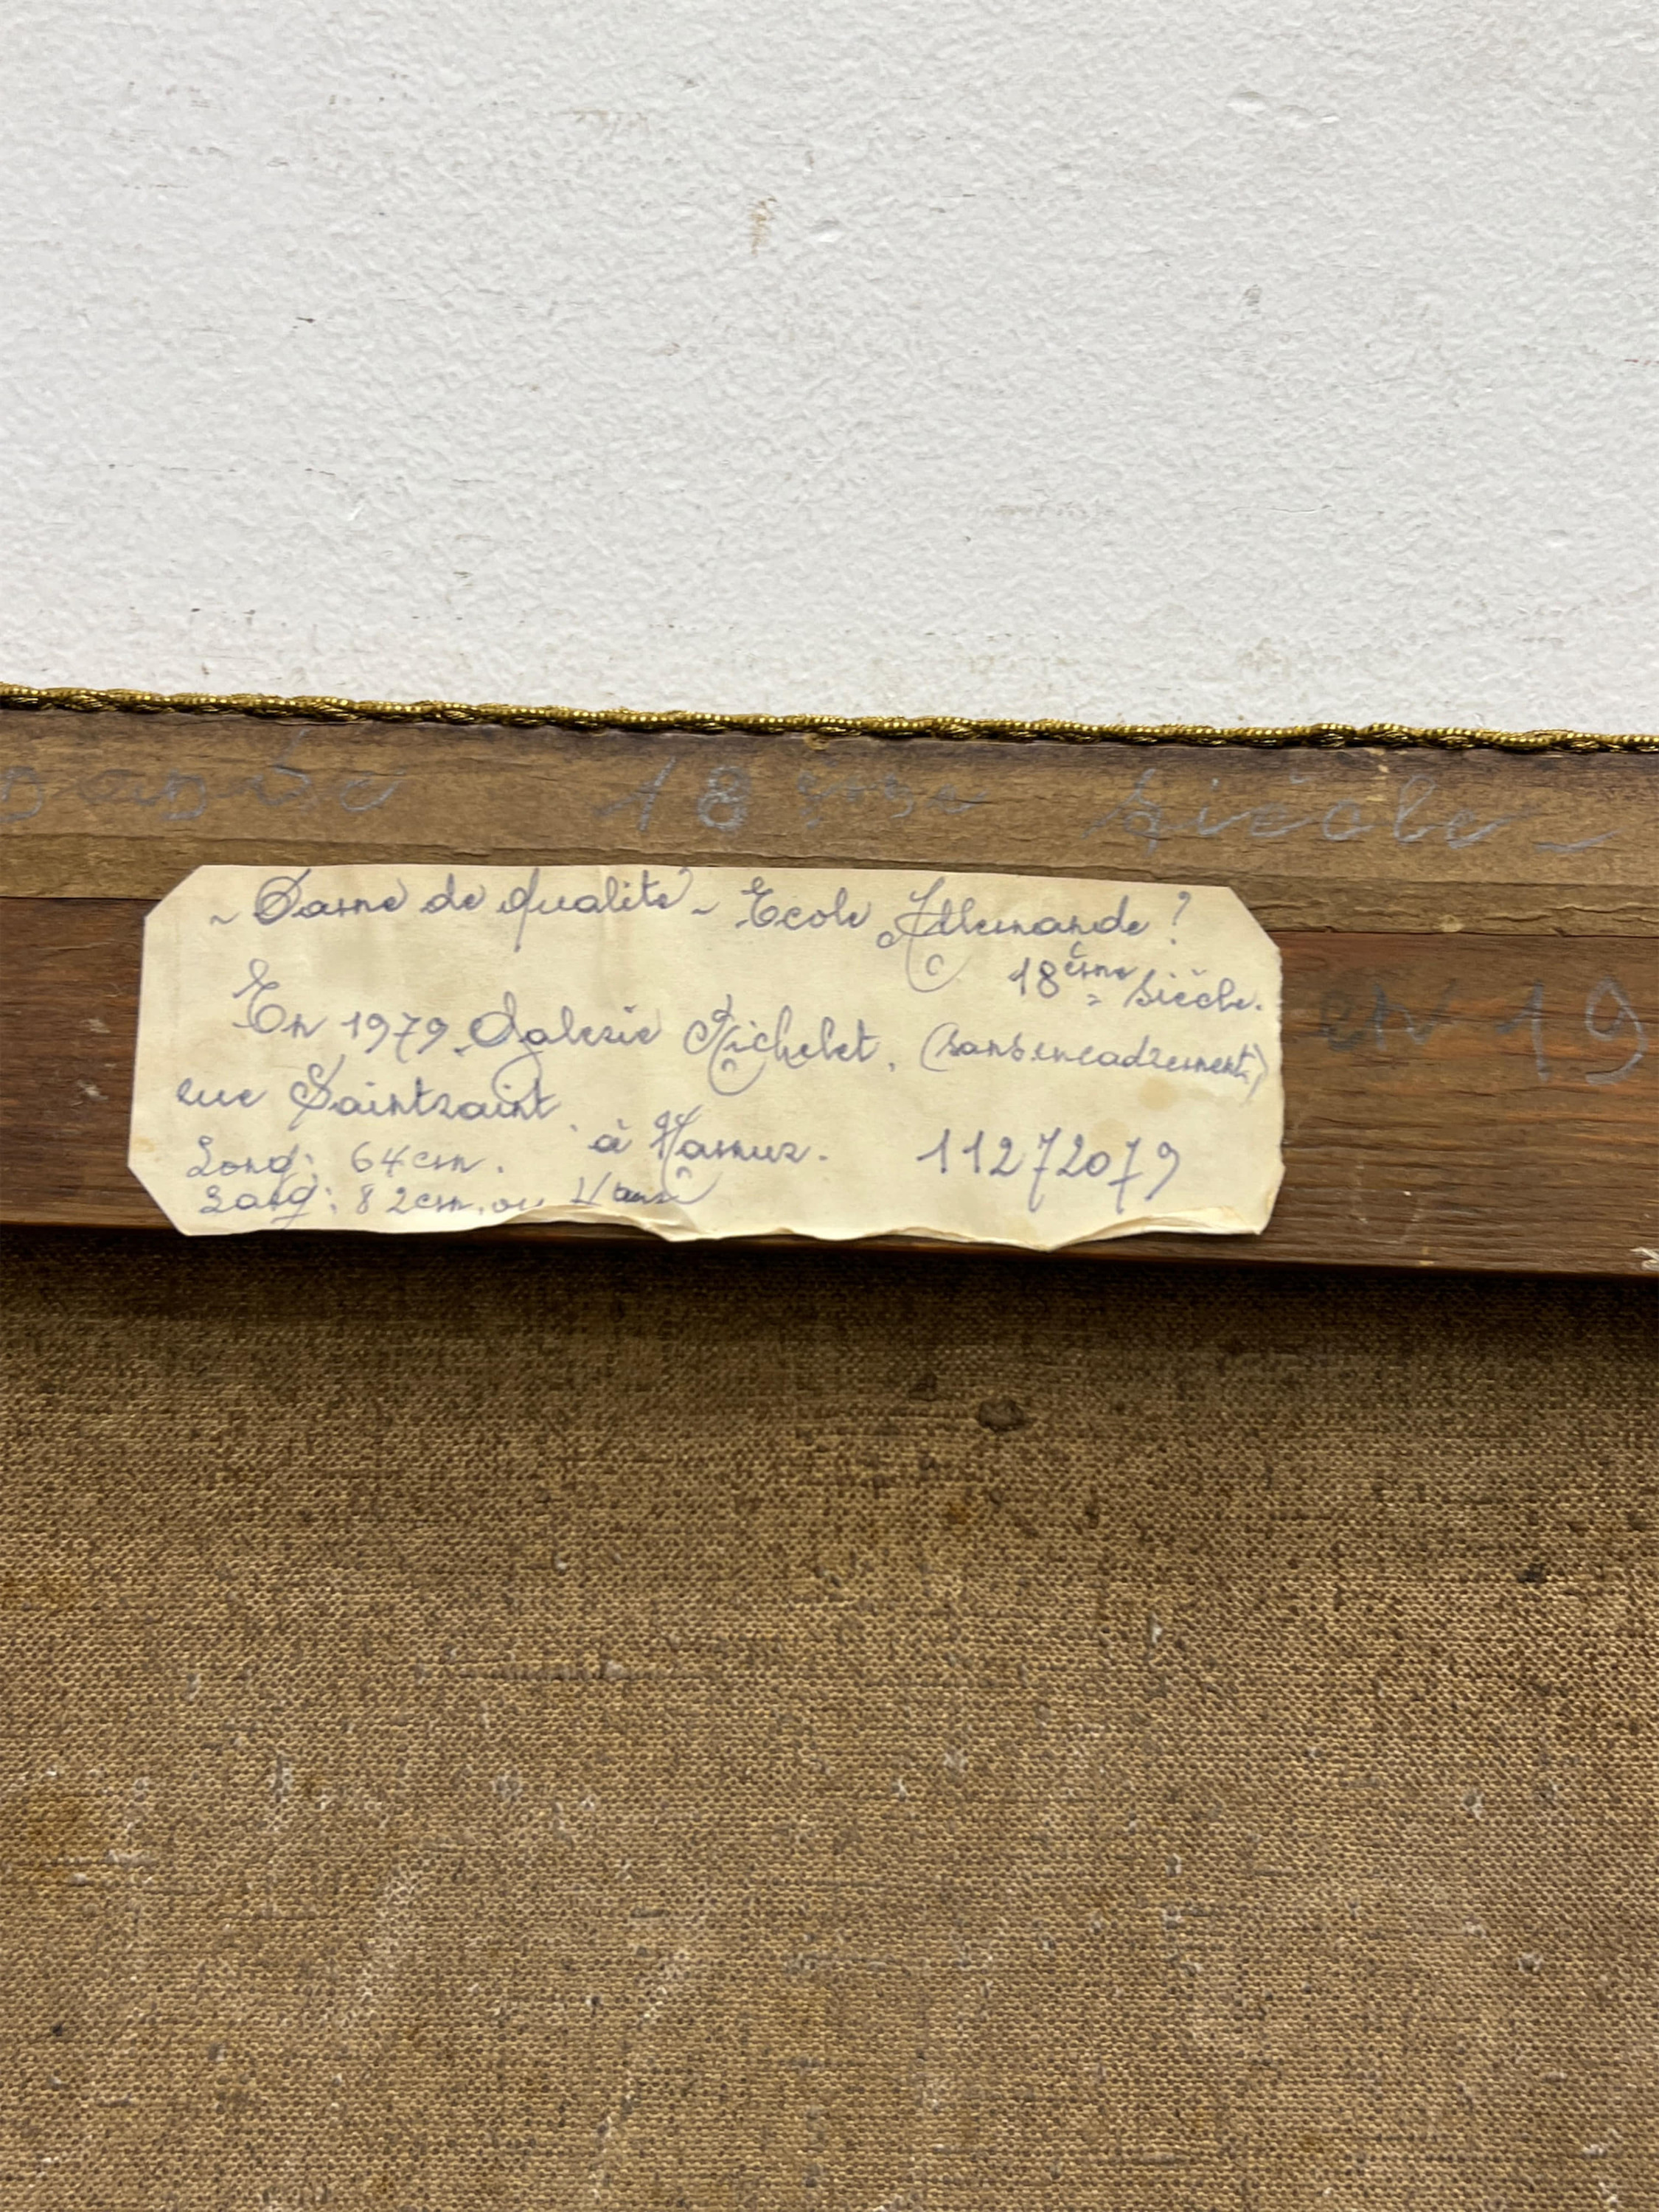 18ème siècle -
~ Dame de qualité ~ Ecole Allemande ?
18ème siècle.
En 1979, Galerie Richelet, (sans encadrement)
rue Saintraint, à Namur. 11272079
Long: 64cm.
Larg: 82cm, ou
en 19